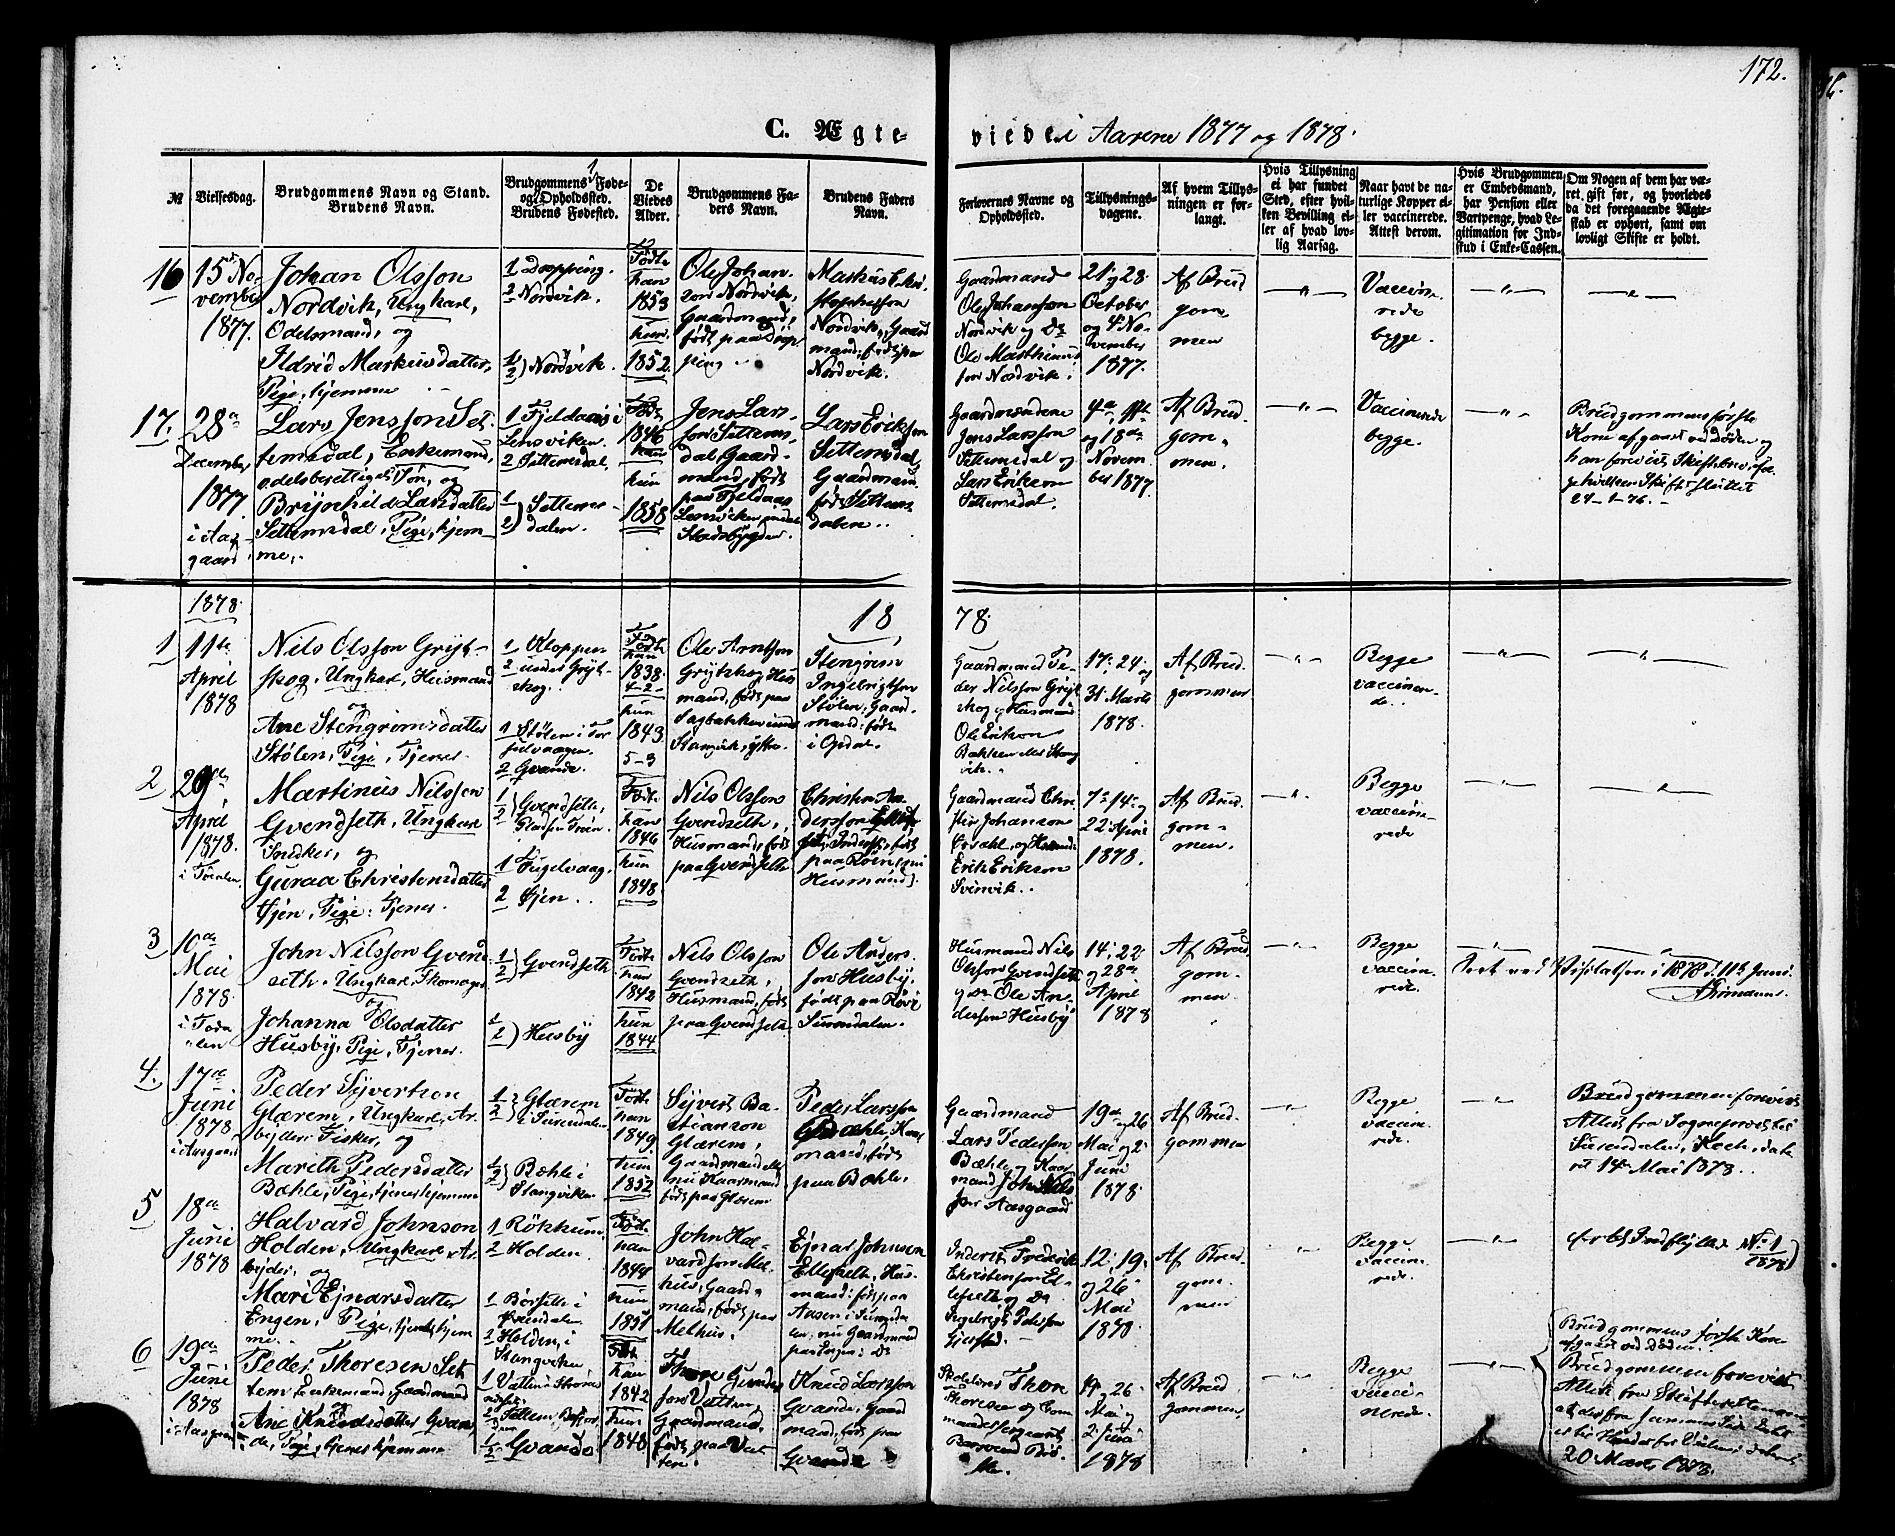 172.
C. Ægte-
viede i Aarene 1877 og 1878.
№
Vielsesdag.
Brudgommens Navn og Stand.
Brudens Navn.
Brudgommens Føde-
og Opholdssted.
Brudens Fødested.
De
Viedes
Alder.
Brudgommens Fa-
ders Navn.
Brudens Faders
Navn.
Forlovernes Navne og
Opholdssted.
Tillysnings-
dagene.
Af hvem Tillys-
ningen er for-
langt.
Hvis Tillysning
ei har fundet
Sted, efter hvil-
ken Bevilling el-
ler af hvad lov-
lig Aarsag.
Naar havt de na-
turlige Kopper el-
ler vaccinerede.
Attest derom.
Hvis Brudgommen
er Embedsmand,
har Pension eller
Vartpenge, hvad Le-
gitimation for Ind-
skud i Enke-Cassen.
Om Nogen af dem har væ-
ret gift før, og hvorledes
da det foregaaende Ægte-
skab er ophørt, samt om
lovligt Skifte er holdt.
16
15de No-
vember
1877.
Johan Olsson
Nordvik, Ungkarl,
Odelsmand, og
Ildrid Markusdatter,
Pige, hjemme
1 Drøpping.
2 Nordvik.
1/2) Nordvik.
Født
han
1853
hun
1852.
Ole Johan-
son Nordvik,
Gaardmand,
født paa Drøp-
ping.
Markus Chri-
stophersson
Nordvik, Gaard
mand, født paa
Nordvik.
Gaardmand
Ole Johansson
Nordvik og Do
Ole Mathias
son Nordvik.
21 og 28
October
og 4 No-
vember
1877.
Af Brud
gom
men
Vaccine
rede
begge.
17.
28de
December
1877
i Aas-
gaard
Lars Jensson Set-
temsdal, Enkemand,
odelsberettiget Søn, og
Brynhild Larsdatter
Settemsdal, Pige, hjem-
me.
1 Fjeldaas i
Lensviken.
2 Settemsdal.
1/2) Settems-
dalen.
Født
1846
han
hun
1858.
Jens Lars-
son Settems-
dal, Gaard-
mand, født
paa Fjeldaas
Lensviken under
Stadsbygden.
Lars Erikson
Settemsdal,
Gaardmand,
født Settems
dalen.
Gaardmændene
Jens Larsson
Settemsdal og
Lars Erikson
Settemsdal.
4de, 11te
og 18de
Novem
ber 1877.
Af Brud
gom
men.
Vaccinerede
begge.
Brudgommens første
Kone afgaaet ved Døden og
han foreviist Skiftebrev
Skifte sluttet
24-1-76.
1878.
1878.
1
11te
April
1878
Nils Olsson Gryt-
skog, Ungkar, Husmand
og
Ane Stengrimsdatter
Stølen, Pige, Tjener.
1 Kloppen
2 under Gryt-
skog.
1 Stølen i Tor
julvaagen.
2 Gvande.
Født
han
1838
4-2-
hun
1843
5-3
Ole Arntson
Grytskog, Hus
mand, født paa
Sagbakken under
Stangvik, ytre.
Stengrim
Ingebrigtson
Stølen, Gaard-
mand, født
i Opdal.
Gaardmand Pe-
der Nilsson Gryt
skog og Husmand
Ole Erikson
Bakken
17, 24, og
31 Marts
1878.
Af Brud
gommen
Begge
vaccinere-
de.
2
29de
April
1878.
i Todalen
Martinus Nilsson
Gvendseth, Ungkarl
Snedker, og
Guraa Christensdatter
Øyen, Pige, Tjener.
1/2) Gvendseth,
1 Fugelvaag.
2 Øyen.
Født
han
1846
hun
1848.
Nils Olsson
Gvendseth,
Husmand, født
paa Gvendseth
Christen An-
dersson
Inderst, født
paa Røen (nu
Husmand).
Gaardmand Chri-
sten Johanson
og Husmand
Erik Erikson
Svinvik.
7, 14, og
22 April
1878.
Af Brud
gom-
men.
Begge
vaccine-
rede
3
10de
Mai
1878.
i Toda
len
John Nilsson Gvend
seth, Ungkar, Skomager
og
Johanna Olsdatter
Husby, Pige, Tjener.
1/2) Gvendseth.
1/2) Husby
Født
han
1842
hun
1844
Nils Olsson
Gvendseth,
Husmand, født
paa Gvendseth
Ole Anders-
son Husby,
født paa Røv i
Surendalen.
Husmand Nils
Olsson Gvendseth
og do Ole An-
dersson Husby
14, 22
og 28de
April
1878
Af Brud
gom-
men.
Begge
vaccine-
rede.
Seet ved Visitatsen i 1878 d. 11te Juni.
4.
17de
Juni
1878.
i Aasgaard
Peder Syvertson
Glærem, Ungkarl, Ar-
beider, Fisker, og
Marith Pedersdatter
Bæhle, Pige, hjemme
1/2) Glærem
i Surendalen.
1/2) Bæhle i
Stangviken
Født
han
1849.
hun
1852
Syvert Ba-
stianson
Glærem,
Gaardmand,
nu Kaarmand
født paa Glærem
Peder Larsson
Bæhle, Kaar
mand, født
paa Bæhle.
Gaardmand
Lars Pederson
Bæhle og Kaar
mand John Nils
son Aasgaard
19de og 26
Mai og 2
Juni
1878
Af Brud
gommen
Begge
vaccine
rede.
Brudgommen foreviist
Attest fra Sognepræsten i
Surendalen, Koch, date
ret 14 Mai 1878.
5
18de
Juni
1878
Halvard Johnson
Holden, Ungkarl, Ar-
beider, og
Mari Ejnarsdatter
Engen, Pige, hjem
me.
1 Røkkum
2 Holden.
1 Børseth i
2 Holden, i
Stangviken
Født
han
hun
John Hal-
vardson Mel-
hus, Gaard-
mand, født paa
Melhus.
Ejnar Johnson
Ellefseth, Hus-
mand, født paa
Aasen i Surenda
len, nu Gaardmand
Inderst Frederik
Christenson El-
lefseth og Do
Ingebrigt Pedersson
12, 19,
og 26
Mai
1878
Af Brud-
gom-
men
Begge
vaccine-
rede.
№ 1
1878)
6
19de
Juni
1878
i Aasgaard
Peder Thoresen Set
tem, Enkemand, Gaardmand
og
Ane Knudsdatter Gvan-
de, Pige, hjemme
2 Settem,
1/2 Gvande
Født
han
1842
hun
1848
Thore
son Vatten,
Gaardmand,
født paa Vat-
ten.
Knud Larsson
Gvande, Gaard
mand, født paa
Gvande
Skolelærer Thore
Thoresen og
19, 26
Mai og
2 Juni
1878
Af Brud
gommen.
Begge
vacci-
nerede.
Brudgommens første Kone
afgaaet ved Døden.
Brudgommen foreviist
Attest fra Skifteretten
20 Marts 1878.